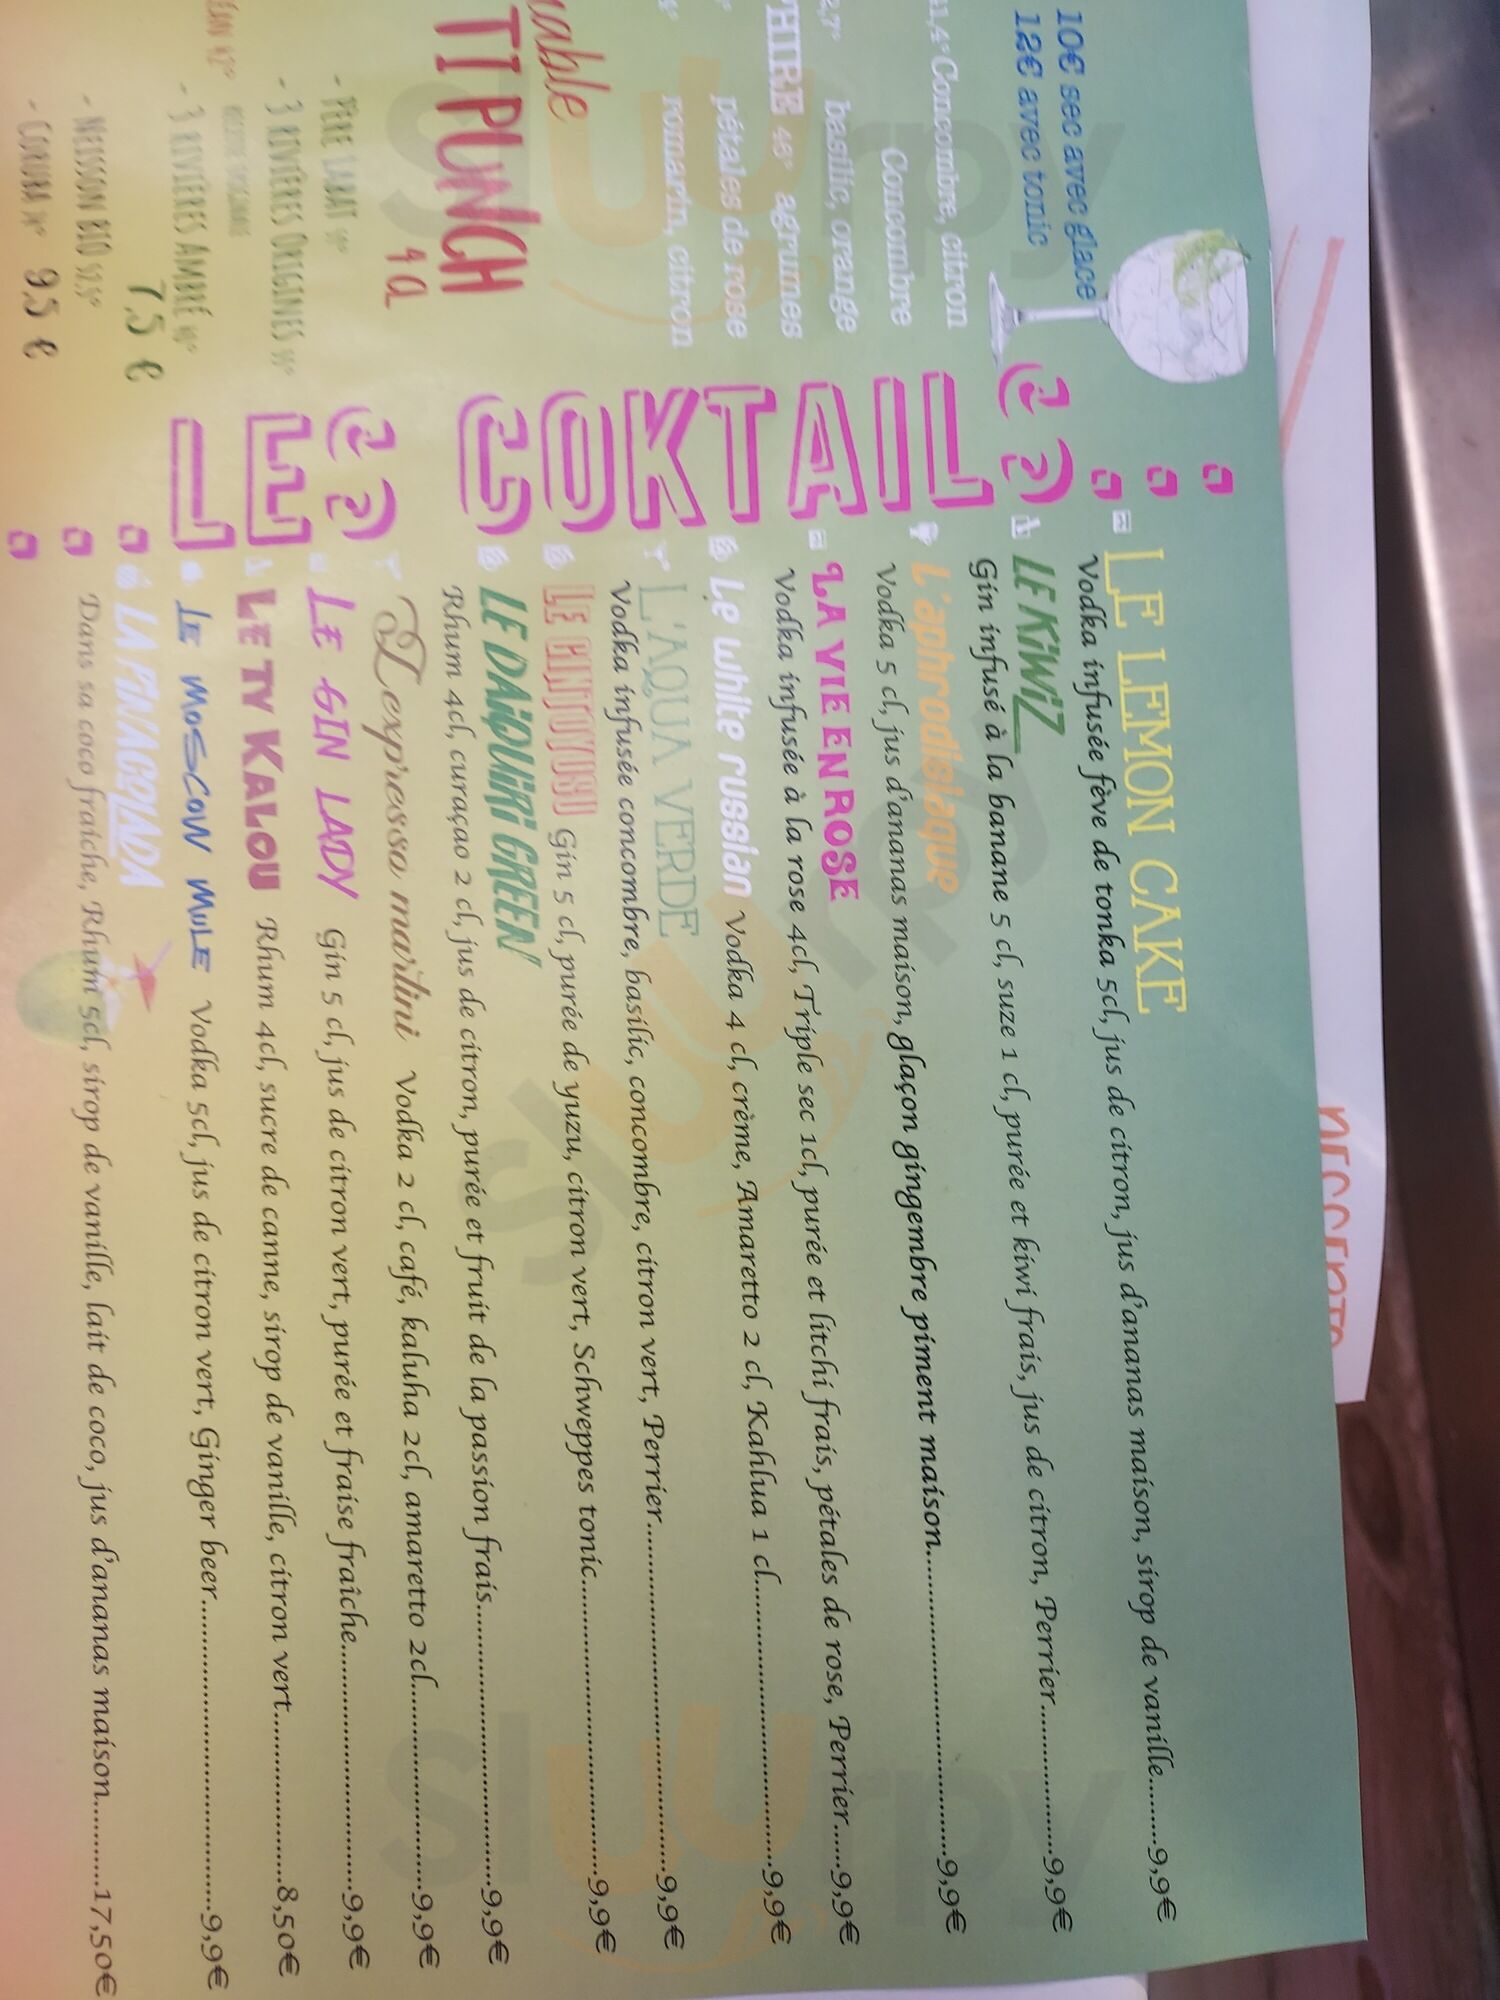 10€ sec avec glace
12€ avec tonic
Concombre, citron
Concombre
basilic, orange
agrumes
pétales de rose
romarin, citron
TI PUNCH
4 cl
- PÈRE LABAT 59°
- 3 RIVIÈRES ORIGINES 55°
- 3 RIVIÈRES AMBRÉ 40°
7,5 €
- NEISSON BIO 52,5°
- COROBA 34°
9,5 €
LE COKTAIL
LE LEMON CAKE
Vodka infusée fève de tonka 5cl, jus de citron, jus d'ananas maison, sirop de vanille........9,9€
LE KiWiZ
Gin infusé à la banane 5 cl, suze 1 cl, purée et kiwi frais, jus de citron, Perrier..................9,9€
L'aphrodisiaque
Vodka 5 cl, jus d'ananas maison, glaçon gingembre piment maison.......................................9,9€
LA VIE EN ROSE
Vodka infusée à la rose 4cl, Triple sec 1cl, purée et litchi frais, pétales de rose, Perrier......9,9€
Le white russian Vodka 4 cl, crème, Amaretto 2 cl, Kahlua 1 cl....................................9,9€
L'AQUA VERDE
Vodka infusée concombre, basilic, concombre, citron vert, Perrier...........................................9,9€
Gin 5 cl, purée de yuzu, citron vert, Schweppes tonic......................................9,9€
LE DAiQUiRi GREEN
Rhum 4cl, curaçao 2 cl, jus de citron, purée et fruit de la passion frais...................................9,9€
L'expresso martini Vodka 2 cl, café, kaluha 2cl, amaretto 2cl.........................9,9€
LE GIN LADY Gin 5 cl, jus de citron vert, purée et fraise fraîche..............................9,9€
LE TY KALOU Rhum 4cl, sucre de canne, sirop de vanille, citron vert....................8,50€
LE MOSCOW MULE Vodka 5cl, jus de citron vert, Ginger beer.......................................9,9€
LA PINACOLADA
Dans sa coco fraîche, Rhum 5cl, sirop de vanille, lait de coco, jus d'ananas maison..........17,50€
Sluurpy
Sluurpy
Sluurpy